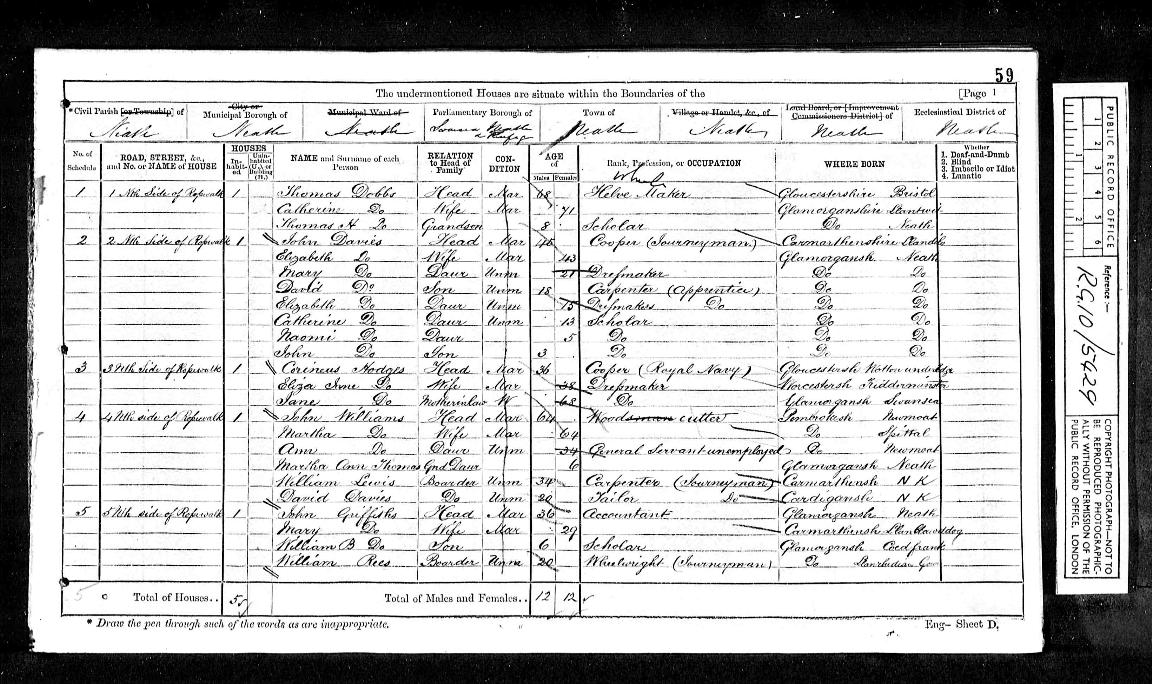 59
The undermentioned Houses are situate within the Boundaries of the [Page 1
*Civil Parish [or Township] of City or Municipal Borough of Municipal Ward of Parliamentary Borough of Town of Village or Hamlet, &c., of Local Board, or [Improvement Commissioners District] of Ecclesiastical District of
Neath Neath Neath Neath Neath Neath Neath
No. of Schedule ROAD, STREET, &c., and No. or NAME of HOUSE HOUSES Inhabited Uninhabited (U.), or Building (B.) NAME and Surname of each Person RELATION to Head of Family CONDITION AGE of Males Females Rank, Profession, or OCCUPATION WHERE BORN Whether 1. Deaf-and-Dumb 2. Blind 3. Imbecile or Idiot 4. Lunatic
1 1 Nth Side of Ropewalk 1 Thomas Dobbs Head Mar 68 Helve Maker Gloucestershire Bristol
Catherine Do Wife Mar 71 Glamorganshire Lantwit
Thomas H Do Grandson 8 Scholar Do Neath
2 2 Nth Side of Ropewalk 1 John Davies Head Mar 45 Cooper (Journeyman) Carmarthenshire Llandilo
Elizabeth Do Wife Mar 43 Glamorgansh Neath
Mary Do Daur Unm 21 Dressmaker Do Do
David Do Son Unm 18 Carpenter (Apprentice) Do Do
Elizabeth Do Daur Unm 15 Dressmakers Do Do Do
Catherine Do Daur Unm 13 Scholar Do Do
Naomi Do Daur 5 Do Do Do
John Do Son 3 Do Do Do
3 3 Nth Side of Ropewalk 1 Cerineus Hodges Head Mar 36 Cooper (Royal Navy) Gloucestersh Wotton underedge
Eliza Do Wife Mar 38 Dressmaker Worcestersh Kidderminster
Jane Do Motherinlaw W 68 Do Glamorgansh Swansea
4 4 Nth side of Ropewalk 1 John Williams Head Mar 64 Wood cutter Pembrokesh Newmoat
Martha Do Wife Mar 64 Do Spittal
Ann Do Daur Unm 34 General Servant unemployed Do Newmoat
Martha Ann Thomas Gnd Daur 6 Glamorgansh Neath
William Lewis Boarder Unm 34 Carpenter (Journeyman) Carmarthensh N K
David Davies Do Unm 20 Tailor Do Cardigansh N K
5 5 Nth side of Ropewalk 1 John Griffiths Head Mar 36 Accountant Glamorgansh Neath
Mary Do Wife Mar 29 Carmarthensh
William B Do Son 6 Scholar Glamorgansh Coedfrank
William Rees Boarder Unm 20 Wheelwright (Journeyman) Do
5 Total of Houses.. 5 Total of Males and Females.. 12 12
* Draw the pen through such of the words as are inappropriate. Eng- Sheet D.
PUBLIC RECORD OFFICE
1 2 3 4 5 6
1 2
Reference:-
R.G. 10/5429
COPYRIGHT PHOTOGRAPH—NOT TO
BE REPRODUCED PHOTOGRAPHIC-
ALLY WITHOUT PERMISSION OF THE
PUBLIC RECORD OFFICE, LONDON